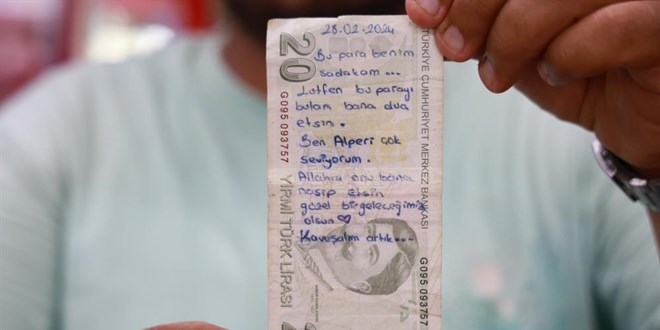 28.02.2024
Bu para benim
sadakam ...
Lutfen bu parayı
bulan bana dua
etsin.
Ben Alperi çok
seviyorum.
Allahım onu bana
nasip etsin
güzel bir geleceğimiz
olsun ♡
Kavuşalım artık...
20
G095 093757
YİRMİ TÜRK LİRASI
TÜRKİYE CUMHURİYET MERKEZ BANKASI
G095 093757